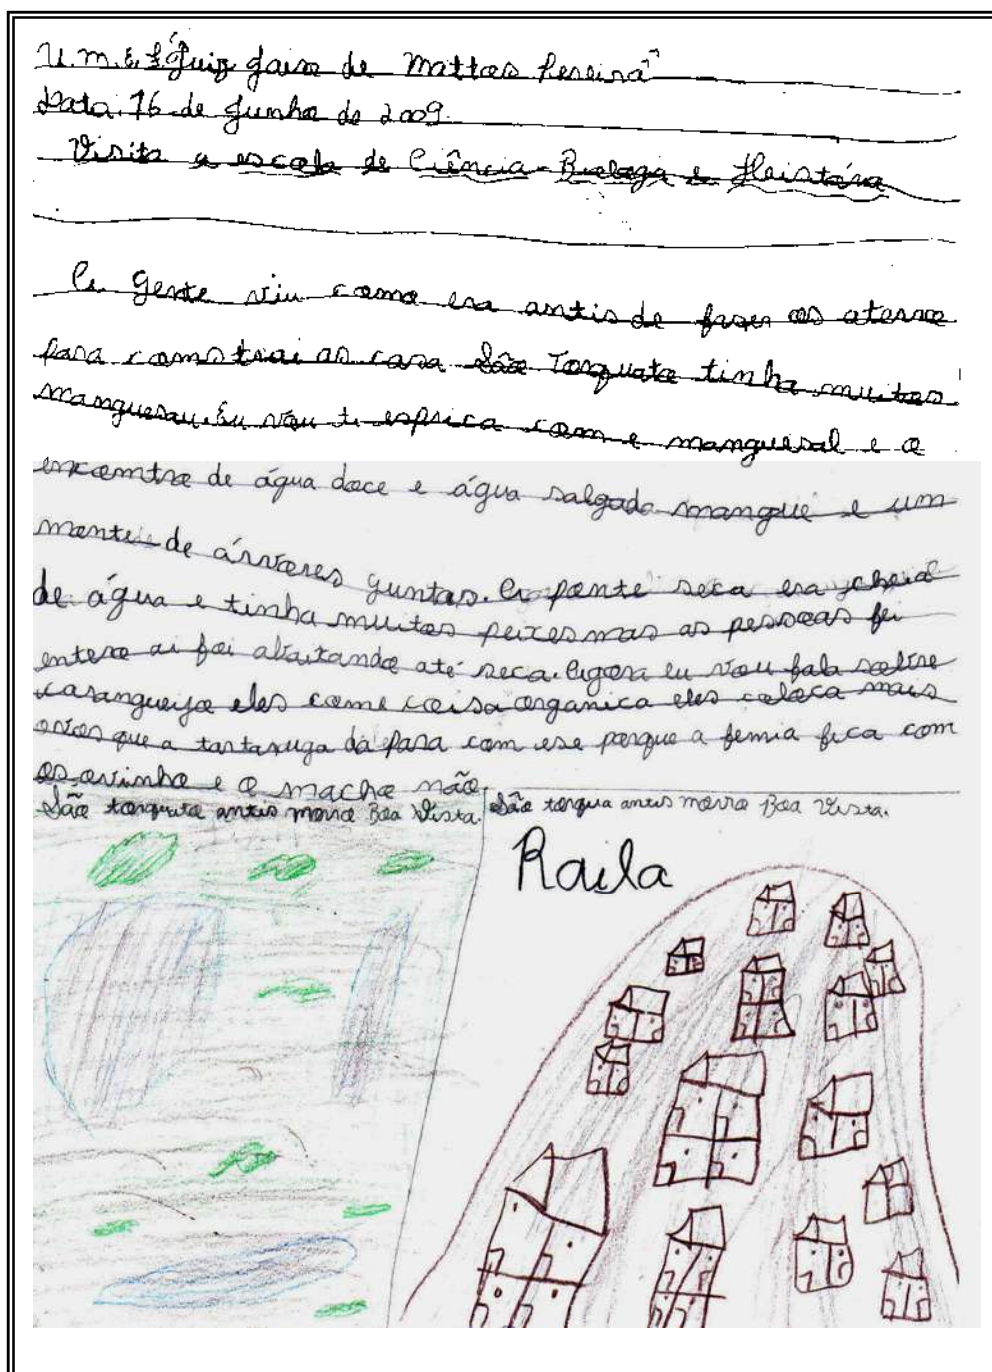 U.M.E.F "Juiz Jairo de Mattos Pereira"
Data. 16 de Junho de 2009.
Visita a escola de Ciência-Biologa e Heistória
A gente viu como era antis de faser os aterro
para comstrui as casa São Torquato tinha muitos
manguesau. Eu vou ti esprica com e manguesal e o
encomtro de água doce e água salgada mangue e um
monte de árvores guntas. A ponte seca era cheia
de água e tinha muitos peixes mas as pessoas fei
entero ai foi abaitando até seca. Agora eu vou fala sobre
carangueijo eles come coisa organica eles coloca mais
ovos que a tartaruga da para com ese porque a femia fica com
os ovinho e o macho não.
São torquato antis morro Boa Vista.
São torqua antis morro Boa Vista.
Raila